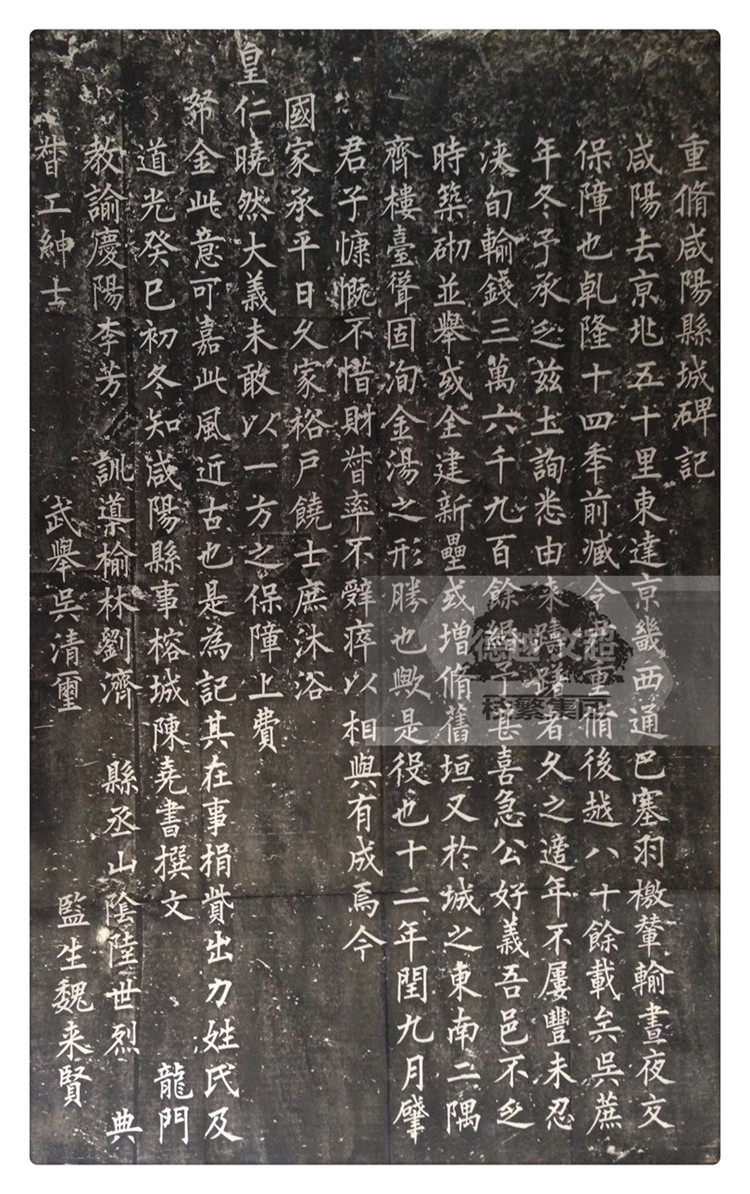 重脩咸陽縣城碑記
咸陽去京兆五十里東達京畿西通巴塞羽檄輦輸晝夜交
保障也乹隆十四年前臧令重脩後越八十餘載矣吳蔗
年冬予承乏茲土詢悉由来躊躇者久之適年不屢豐未忍
浹旬輸錢三萬六千九百餘緡予甚喜急公好義吾邑不乏
時築砌並舉或全建新壘或增脩舊垣又於城之東南二隅
齊樓臺聳固洵金湯之形勝也歟是役也十二年閏九月肇
君子慷慨不惜財督率不辤瘁以相與有成焉今
國家承平日久家裕戶饒士庶沐浴
皇仁曉然大義未敢以一方之保障上費
帑金此意可嘉此風近古也是為記其在事捐貲出力姓氏及
道光癸巳初冬知咸陽縣事榕城陳堯書撰文 龍門
教諭慶陽李芳 訓導榆林劉濟 縣丞山陰陸世烈 典
督工紳士 武舉吳清璽 監生魏来賢
德越文超